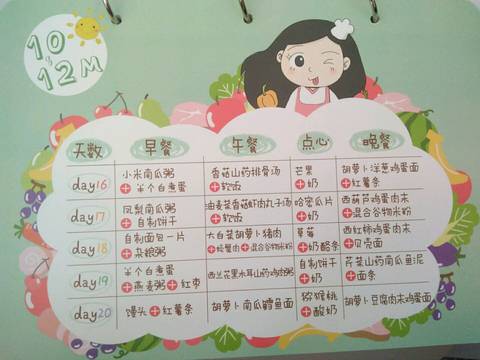 10~12M
天数 早餐 午餐 点心 晚餐
day16 小米南瓜粥 香菇山药排骨汤 芒果 胡萝卜洋葱鸡蛋面
+半个白煮蛋 +软饭 +奶 +红薯条
day17 凤梨南瓜粥 油麦菜香菇虾肉丸子汤 哈密瓜片 西葫芦鸡蛋肉末
+自制饼干 +软饭 +奶 +混合谷物米粉
day18 自制面包一片 大白菜胡萝卜猪肉 草莓 西红柿鸡蛋肉末
+杂粮粥 +螃蟹肉+混合谷物米粉 +奶酪条 +贝壳面
day19 半个白煮蛋 西兰花黑木耳山药鸡肉粥 自制饼干 芹菜山药南瓜鱼泥
+燕麦粥+红枣 +奶 +面条
day20 馒头+红薯条 胡萝卜南瓜鳕鱼面 猕猴桃 胡萝卜豆腐肉末鸡蛋面
+酸奶